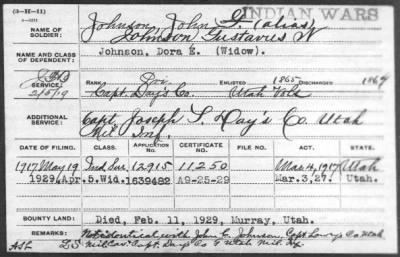 (3-H-11)
INDIAN WARS
NAME OF SOLDIER:
Johnson, John G. (alias)
Johnson Gustavus N
NAME AND CLASS OF DEPENDENT:
Johnson, Dora E. (Widow).
SERVICE:
2/5/19
RANK Pvt ENLISTED 1865 DISCHARGED 1867
Capt. Day's Co. Utah Vols
ADDITIONAL SERVICE:
Capt Joseph S. Day's Co. Utah
Mil Inf.
DATE OF FILING. CLASS. APPLICATION NO. CERTIFICATE NO. LAW. ACT. STATE.
1917 May 19 Ind Sur. 12915 11250 Mar 4, 1917 Utah
1929, Apr. 5. Wid. 1639482 A9-25-29 Mar. 3, 27. Utah.
BOUNTY LAND: Died, Feb. 11, 1929, Murray, Utah.
REMARKS: Not identical with John C. Johnson Capt Lowry's Co. Utah
Mil Cav. Capt. Day's Co Utah Mil.